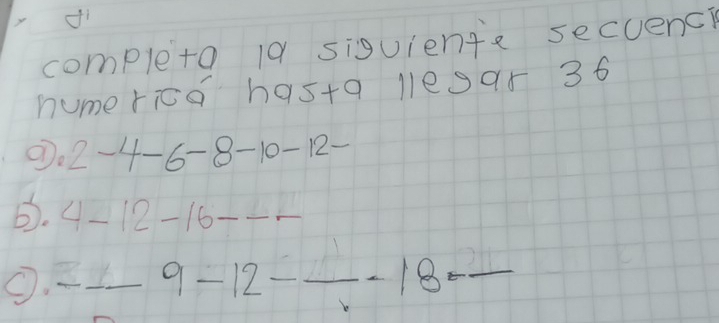 completa la siguiente secuenci
numerica hasta llegar 36
a). 2-4-6-8-10-12-
b). 4-12-16---
c). -__ 9-12-__-18-__